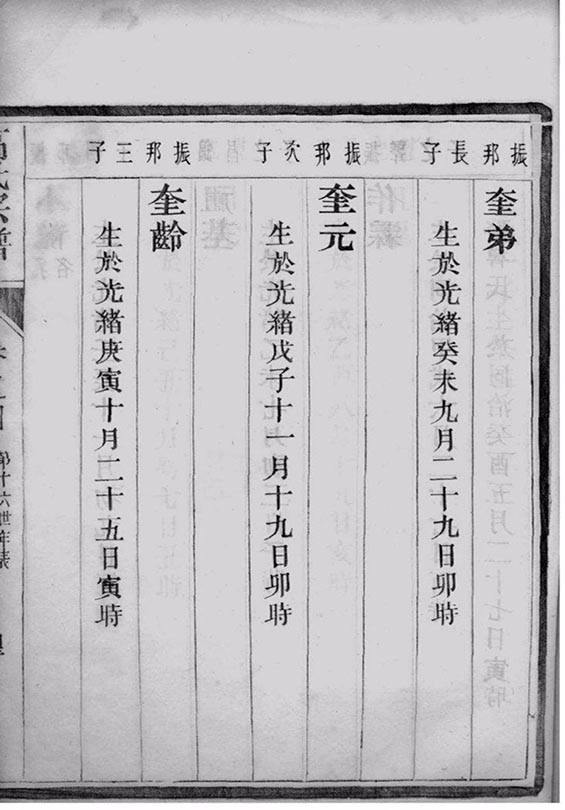 振邦長子
奎弟
生於光緒癸未九月二十九日卯時
振邦次子
奎元
生於光緒戊子十一月十九日卯時
振邦三子
奎齡
生於光緒庚寅十月二十五日寅時
第十六世年表